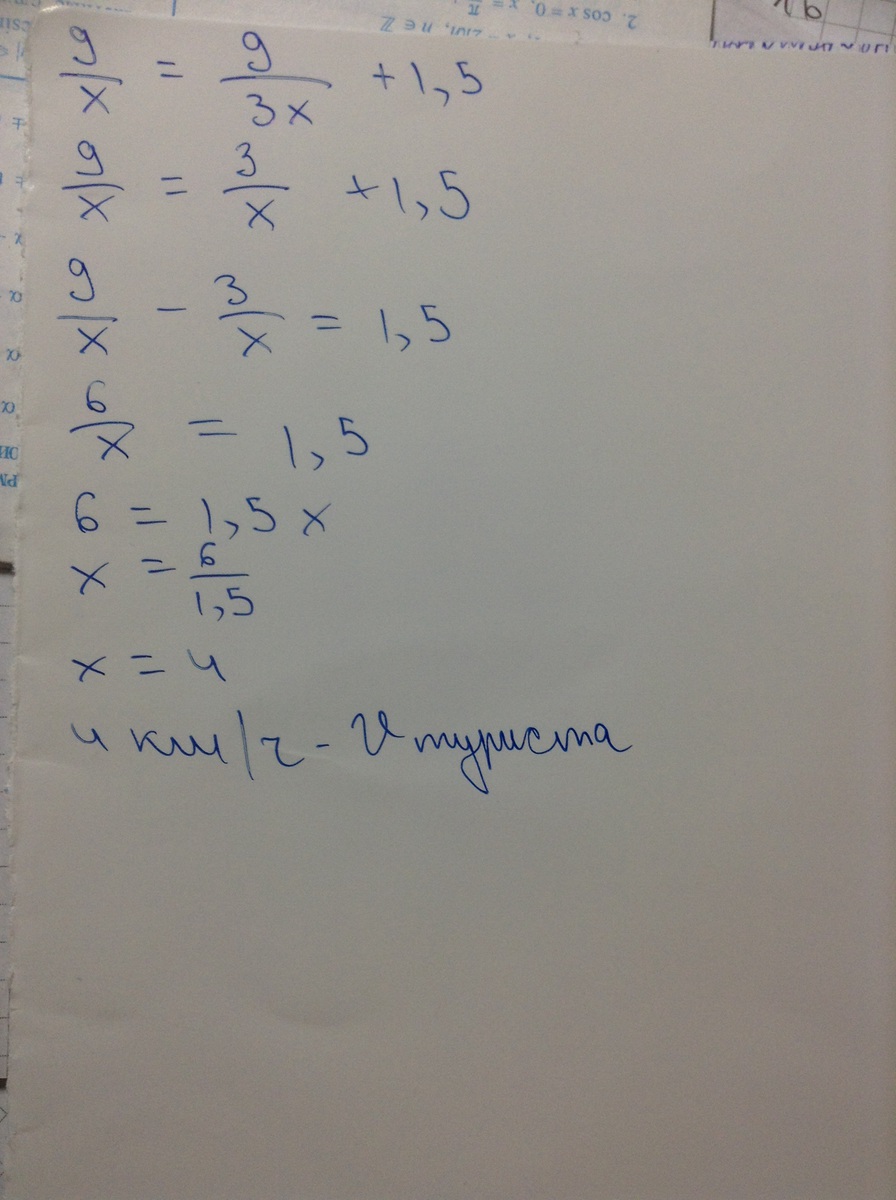 2. cos x = 0, x =
n ∈ Z
9/x = 9/3x + 1,5
9/x = 3/x + 1,5
9/x - 3/x = 1,5
6/x = 1,5
6 = 1,5 x
x = 6/1,5
x = 4
4 км/ч - V туриста